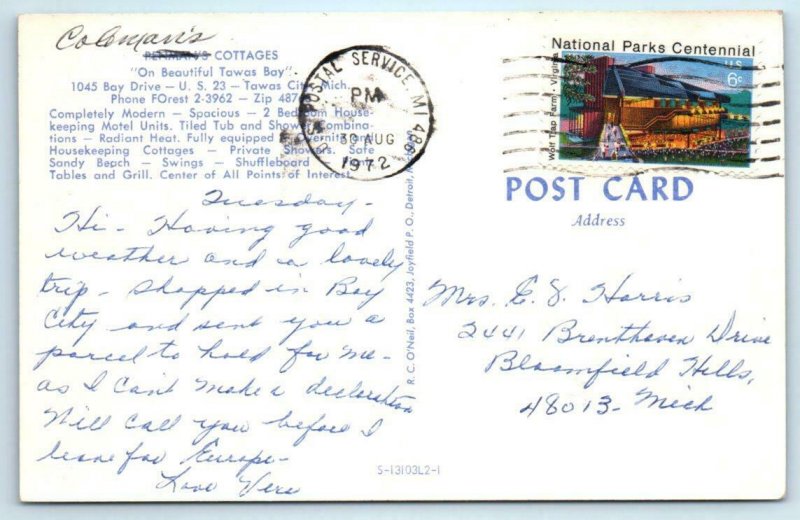 Coleman's
PENMAN'S COTTAGES
"On Beautiful Tawas Bay"
1045 Bay Drive — U. S. 23 — Tawas City, Mich.
Phone FOrest 2-3962 — Zip 487
Completely Modern — Spacious — 2 Bedroom House-
keeping Motel Units. Tiled Tub and Shower Combina-
tions — Radiant Heat. Fully equipped
Housekeeping Cottages — Private Showers. Safe
Sandy Beach — Swings — Shuffleboard
Tables and Grill. Center of All Points of Interest.
POSTAL SERVICE MI 486
PM
30 AUG
1972
National Parks Centennial
US
6c
Wolf Trap Farm, Virginia
POST CARD
Address
Tuesday-
Hi - Having good
weather and a lovely
trip - shopped in Bay
City and sent you a
parcel to hold for me -
as I can't make a declaration
Will call you before I
leave for Europe -
Love Vera
R. C. O'Neil, Box 4423, Joyfield P. O., Detroit,
Mrs. E. J. Harris
2441 Brenthaven Drive
Bloomfield Hills,
48013 - Mich
S-13103L2-1